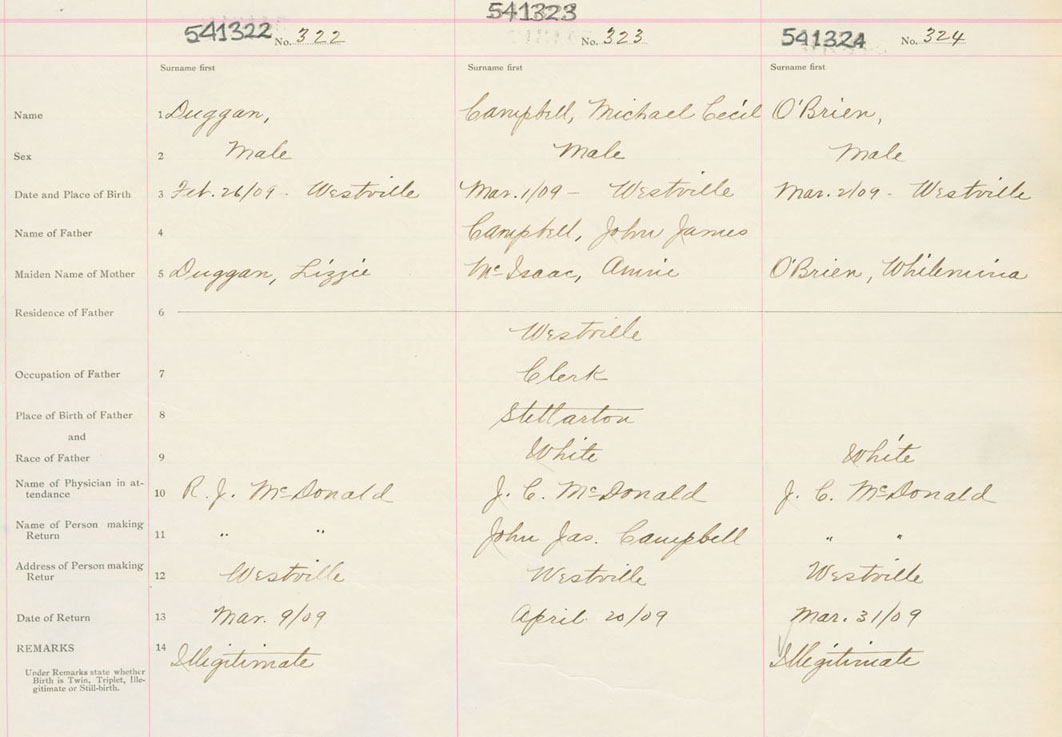 541322 No. 322 541323 No. 323 541324 No. 324
Surname first Surname first Surname first
Name 1 Duggan, Campbell, Michael Cecil O'Brien,
Sex 2 Male Male Male
Date and Place of Birth 3 Feb. 26/09 - Westville Mar. 1/09 - Westville Mar. 2/09 - Westville
Name of Father 4 Campbell, John James
Maiden Name of Mother 5 Duggan, Lizzie McIsaac, Annie O'Brien, Whilemina
Residence of Father 6 Westville
Occupation of Father 7 Clerk
Place of Birth of Father 8 Stellarton
and
Race of Father 9 White White
Name of Physician in at-
tendance 10 R. J. McDonald J. C. McDonald J. C. McDonald
Name of Person making
Return 11 " " John Jas. Campbell " "
Address of Person making
Retur 12 Westville Westville Westville
Date of Return 13 Mar. 9/09 April 20/09 Mar. 31/09
REMARKS 14 Illigitimate Illigitimate
Under Remarks state whether
Birth is Twin, Triplet, Ille-
gitimate or Still-birth.